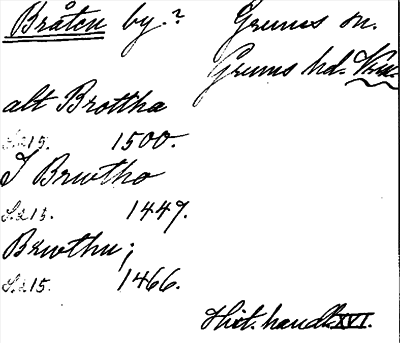 Bråten by.? Grums sn.
Grums hd. Vrm.
alt Brottha
S. 215. 1500.
J Brwtho
S. 215. 1447.
Brwthu;
S. 215. 1466.
Hist. handl. XVI.